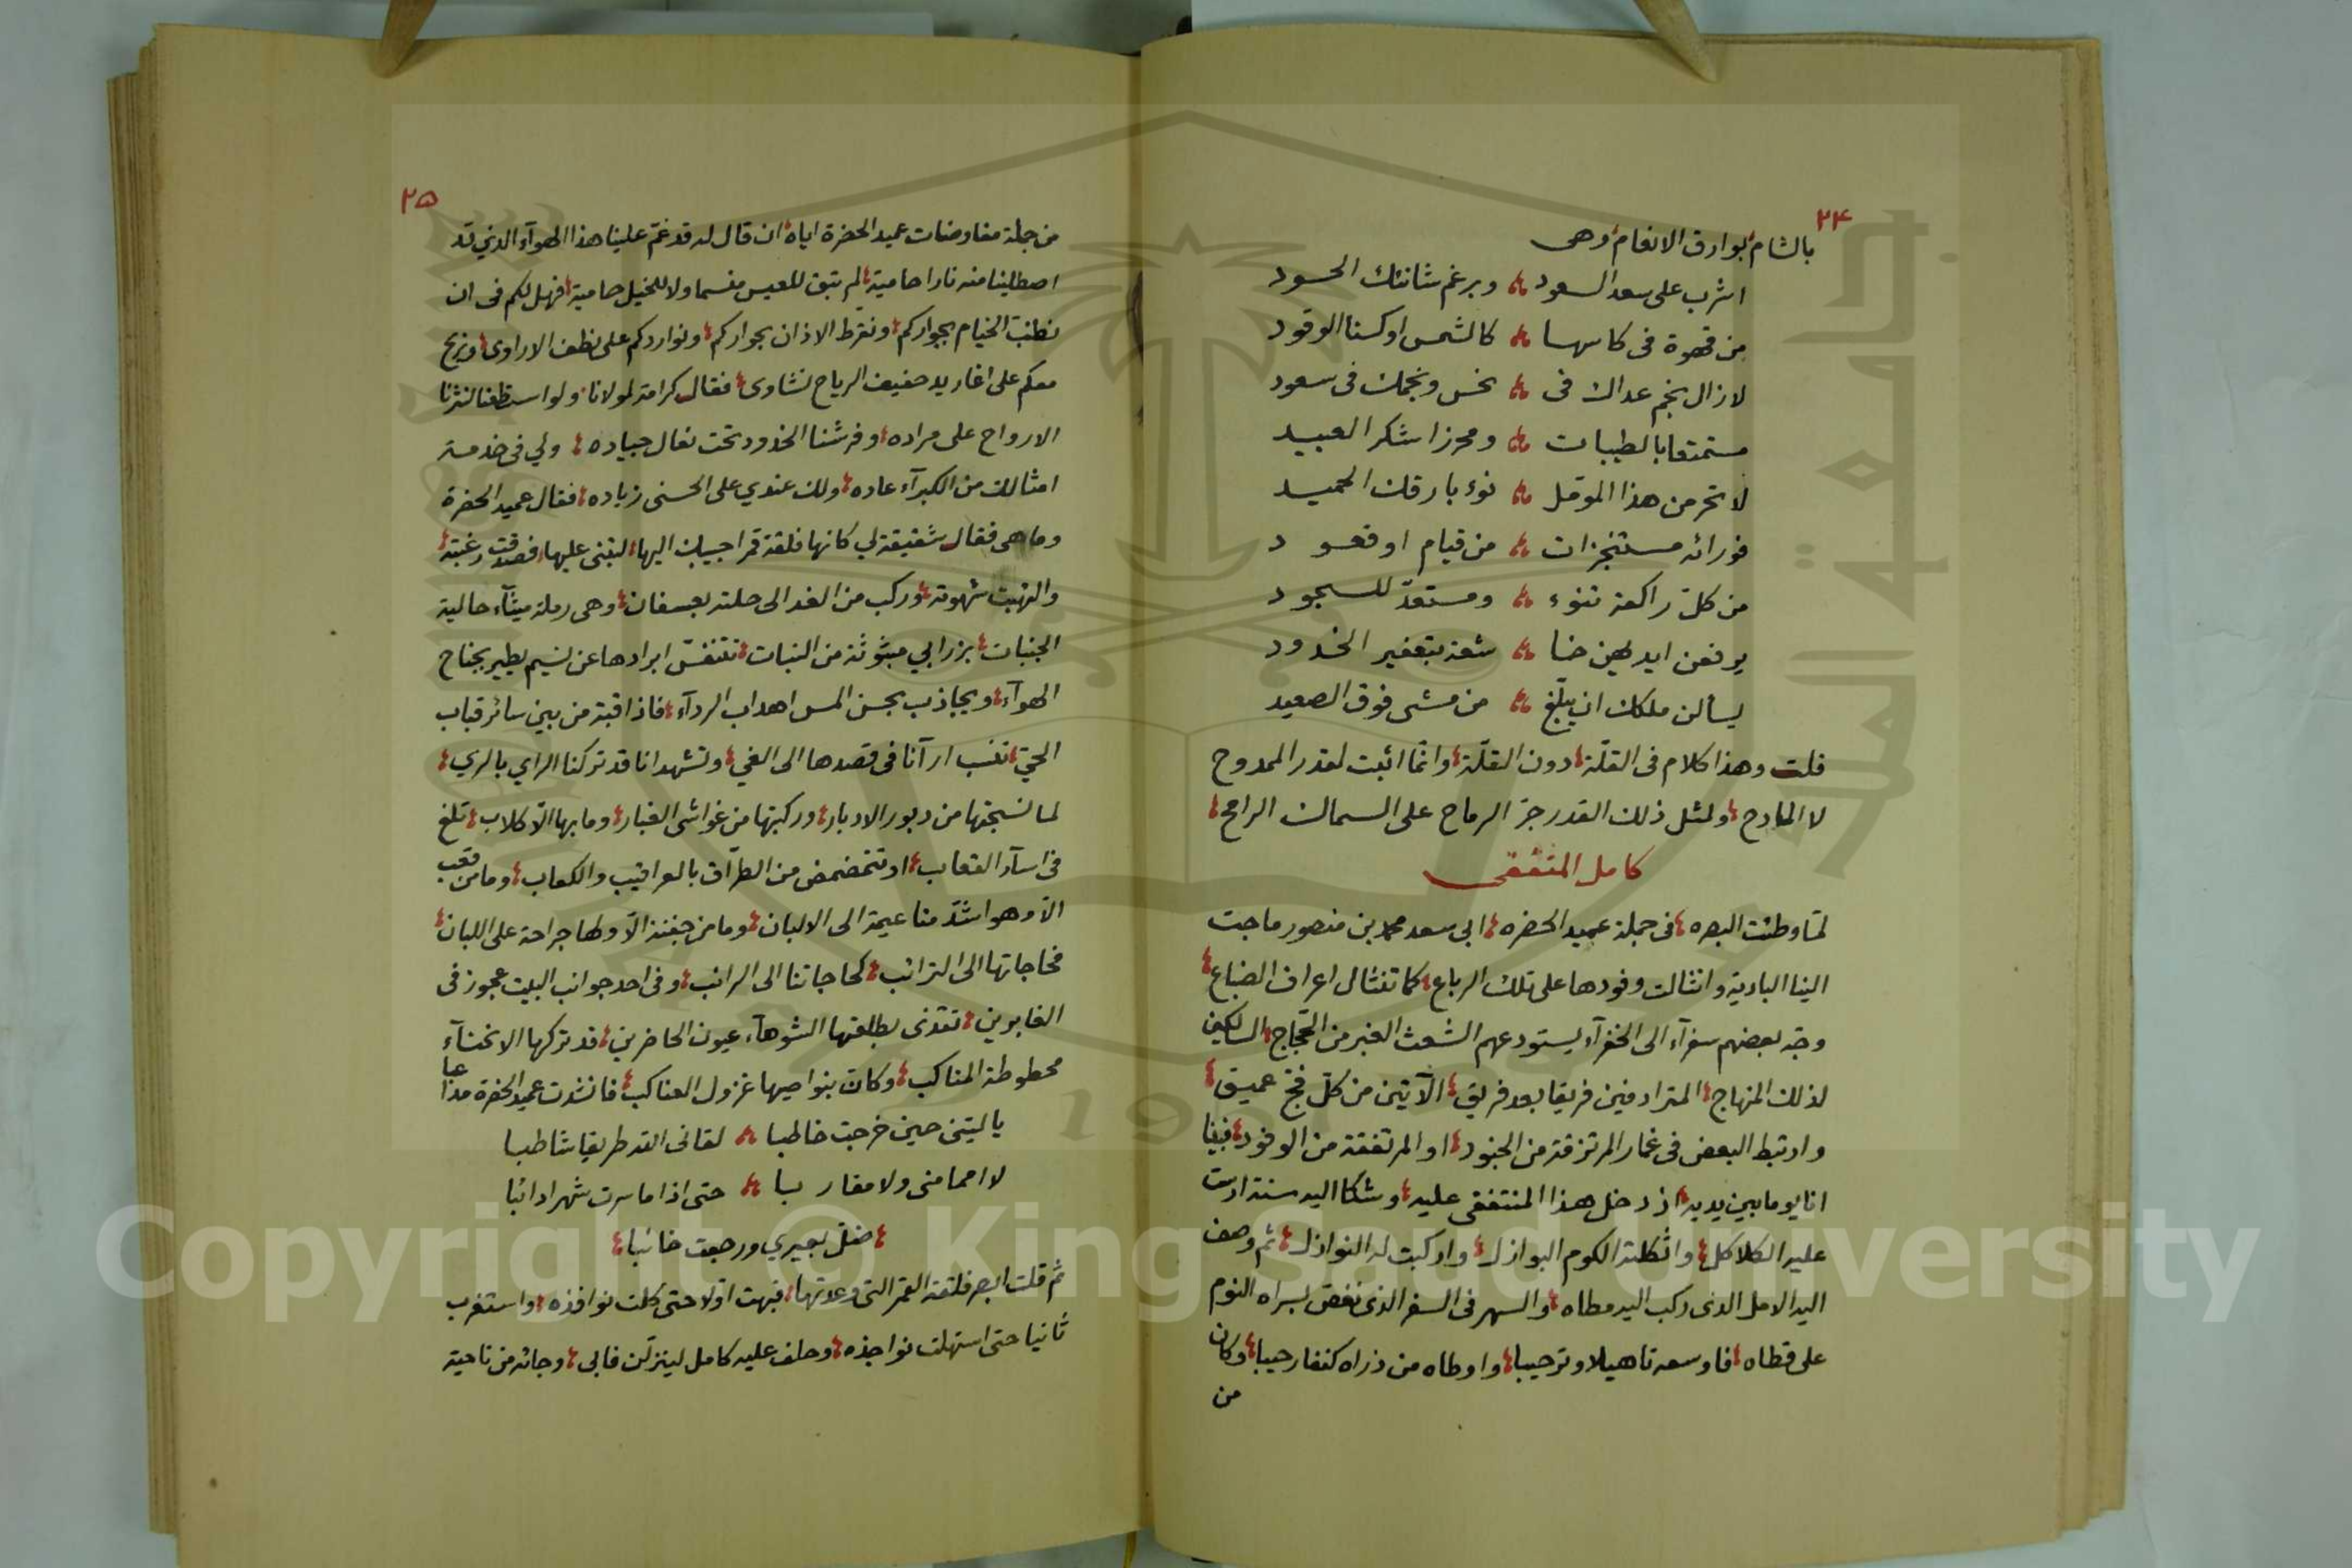 ٢٤
بالشام بوارق الانعام وهى
اشرب على سعد السعود وبرغم شانئك الحسود
من قهوة فى كاسها كالشمس اوكسنا الوقود
لازال نجم عداك فى نحس ونجمك فى سعود
مستمتعا بالطيبات ومحرزا شكر العبيد
لا تحرمن هذا المؤمل نوء بارقك الحميد
فورائه مستنجزات من قيام او قعود
من كل راكعة تنوء ومستعدّ للسجود
يرفعن ايديهن خا شعة بتعفير الخدود
يسألن ملكك ان يبلّغ من مشى فوق الصعيد
قلت وهذا كلام فى القلّة دون القلّة وانما اثبت لقدر الممدوح
لا المادح ولمثل ذلك القدر جرّ الرماح على السماك الرامح
كامل المنتفقى
لمّا وطئت البصره فى جملة عميد الحضره ابى سعد محمد بن منصور ماجت
الينا البادية وانثالت وفودها على تلك الرباع كما تنثال اعراف الضباع
وجّه بعضهم سفرآء الى الخفرآء يستودعهم الشعث الغبر من الحجّاج السالكين
لذلك المنهاج المترادفين فريقا بعد فريق الآتين من كلّ فجّ عميق
وارتبط البعض فى غمار المرتزقة من الجنود او المرتفقة من الوفود فبينا
انا يوما بين يديه اذ دخل هذا المنتفقى عليه وشكا اليه سنة ادرست
عليه الكلاكل واثكلته الكوم البوازل واركبت له النوازل ثم وصف
اليه الامل الذى ركب اليه مطاه والسهر فى السفر الذى نغض لسراه النوم
على قطاه فاوسعه تاهيلا وترحيبا واوطاه من ذراه كنفا رحيبا وكان
من
٢٥
من جملة مفاوضات عميد الحضرة اياه ان قال له قد غمّ علينا هذا الهوآء الذي قد
اصطلينا منه نارا حامية لم تبق للعيس منسما ولا للخيل حامية فهل لكم فى ان
نطنب الخيام بجواركم ونقرط الاذان بحواركم ونواردكم على نطف الاراوى ونريح
معكم على اغاريد حفيف الرياح نشاوى فقال كرامة لمولانا ولو استطعنا لنثرنا
الارواح على مراده وفرشنا الخدود تحت نعال جياده ولي فى خدمة
امثالك من الكبرآء عاده ولك عندي على الحسنى زياده فقال عميد الحضرة
وما هى فقال شقيقة لي كانها فلقة قمر اجيبك اليها لتبنى عليها فصدقت رغبته
والتهبت شهوته وركب من الغد الى حلته بعسفان وهى رملة ميثآء حالية
الجنبات بزرابي مبثوثة من النبات تتنفس ابرادها عن نسيم يطير بجناح
الهوآء ويجاذب بحسن المس اهداب الردآء فاذا قبة من بين سائر قباب
الحيّ تنسب ارآنا فى قصدها الى الغي وتشهد انا قد تركنا الراي بالري
لما نسجتها من دبور الادبار وركبتها من غواشى الغبار وما بها الّا كلاب تلغ
فى اسآر القعاب او تتمضمض من الطرّاق بالعراقيب والكعاب وما من قعب
الّا وهو اشدّ منا عيمة الى الالبان وما من جفنة الّا ولها جراحة على اللبان
فحاجاتها الى الترائب كحاجاتنا الى الرائب وفى احد جوانب البيت عجوز فى
الغابرين تقذى بطلعتها الشوهآء عيون الحاضرين قد تركها الانحنآء
محطوطة المناكب وكانّ بنواصيها غزول العناكب فانشدت عميد الحضرة مداعا
يا ليتنى حين خرجت خاطبا لقانى القد طريقا شاطبا
لا امما منى ولا مقاربا حتى اذا ما سرت شهرا دائبا
ضلّ بعيري ورجعت خائبا
ثم قلت ابصر فلقة القمر التى وعدتها فبهت اوّلا حتى كلت نوافذه واستغرب
ثانيا حتى استهلت نواجذه وحلف عليه كامل لينزلن فابى وجائه من ناحية